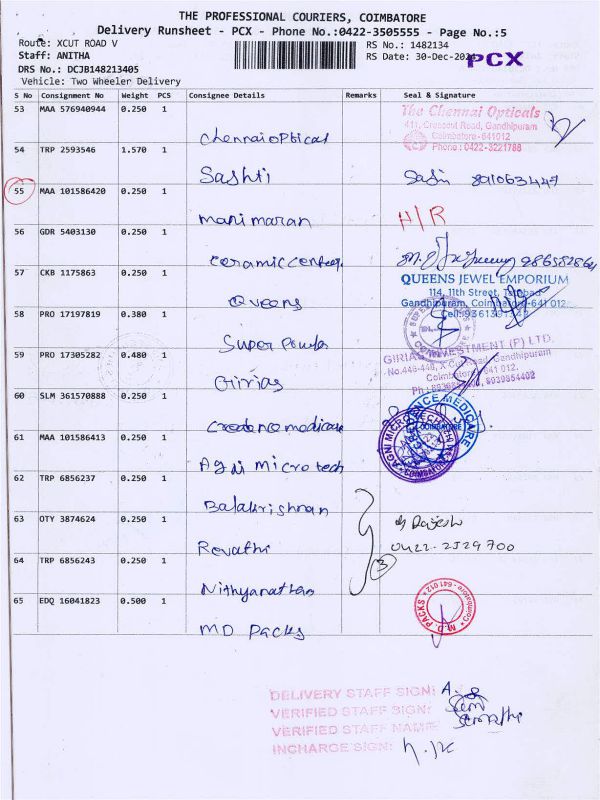 THE PROFESSIONAL COURIERS, COIMBATORE
Delivery Runsheet - PCX - Phone No.:0422-3505555 - Page No.:5
Route: XCUT ROAD V
RS No.: 1482134
Staff: ANITHA
RS Date: 30-Dec-2024
PCX
DRS No.: DCJB148213405
Vehicle: Two Wheeler Delivery
S No Consignment No Weight PCS Consignee Details Remarks Seal & Signature
53 MAA 576940944 0.250 1
The Chennai Opticals
411, Crosscut Road, Gandhipuram
Coimbatore-641012
Phone : 0422-3221788
Chennai optical
54 TRP 2593546 1.570 1
Sashti
55 MAA 101586420 0.250 1
Manimaran H/R
56 GDR 5403130 0.250 1
Ceramic Center
57 CKB 1175863 0.250 1
QUEENS JEWEL EMPORIUM
114, 11th Street, Tatabad
Gandhipuram, Coimbatore-641 012.
Queens
58 PRO 17197819 0.380 1
Super Power
59 PRO 17305282 0.480 1
GIRIAS INVESTMENT (P) LTD.
No.446-448, X Cut Road, Gandhipuram
Coimbatore-641 012.
Girias
60 SLM 361570888 0.250 1
Credence medicare
CREDENCE MEDICARE
COIMBATORE
61 MAA 101586413 0.250 1
Agni Micro tech
AGNI MICROTECH
COIMBATORE
62 TRP 6856237 0.250 1
Balakrishnan
63 OTY 3874624 0.250 1
Rajesh
Revathi 0422-2529700
64 TRP 6856243 0.250 1
3
Nithyananthan
65 EDQ 16041823 0.500 1
M.D. PACKS * Coimbatore - 641 012 *
MD Packs
DELIVERY STAFF SIGN:
VERIFIED STAFF SIGN:
VERIFIED STAFF NAME:
INCHARGE SIGN: